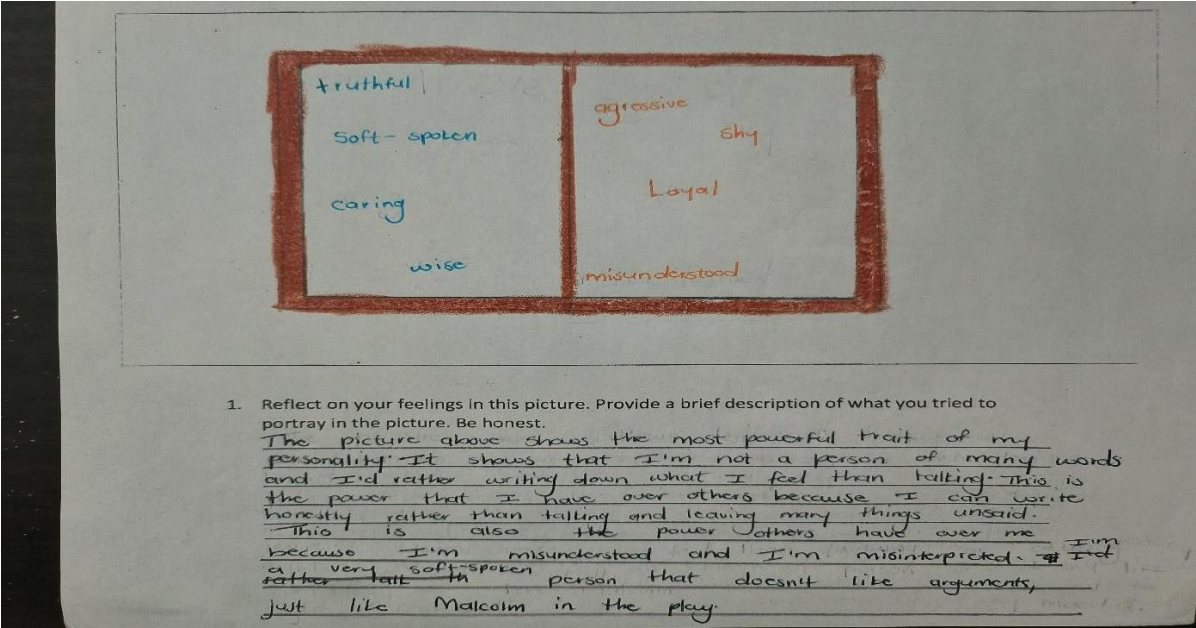 truthful
agressive
soft-spoken
shy
Loyal
caring
wise
misunderstood
1. Reflect on your feelings in this picture. Provide a brief description of what you tried to
portray in the picture. Be honest.
The picture above shows the most powerful trait of my
personality. It shows that I'm not a person of many words
and I'd rather writing down what I feel than talking. This is
the power that I have over others because I can write
honestly rather than talking and leaving many things unsaid.
This is also the power others have over me
because I'm misunderstood and I'm misinterpreted. I'm
a very soft-spoken person that doesn't like arguments,
just like Malcolm in the play.